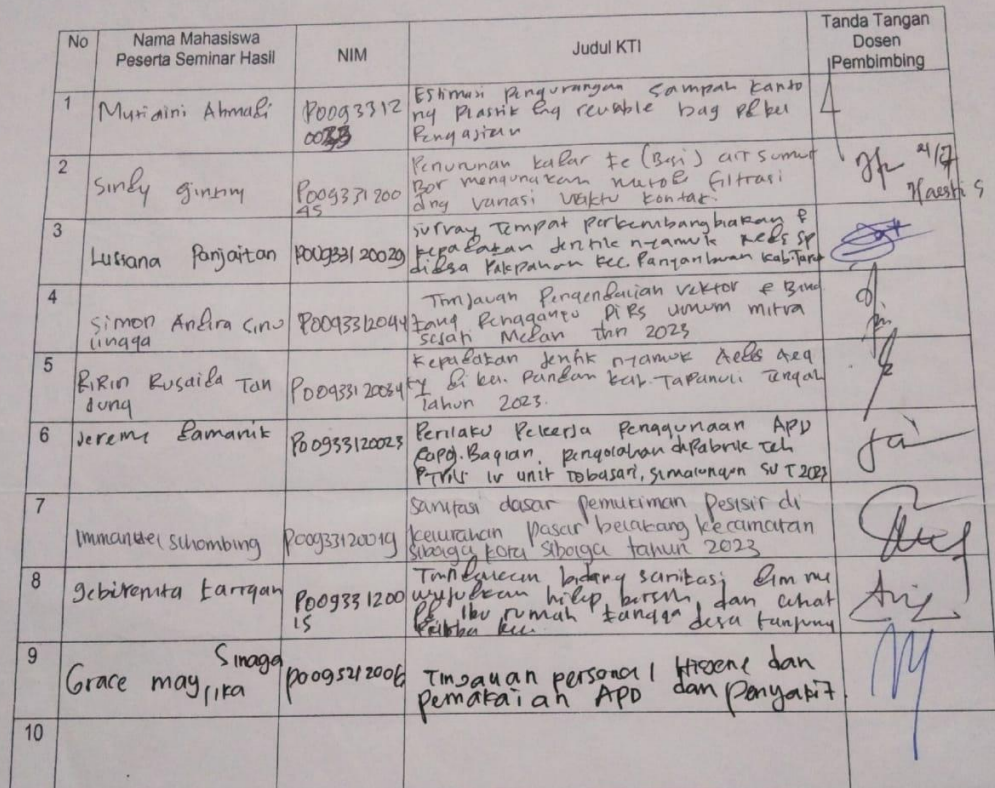 No
Nama Mahasiswa
Peserta Seminar Hasil
NIM
Judul KTI
Tanda Tangan
Dosen
Pembimbing
1
Mutiaini Ahmadi
P0093312
0033
Estimasi Pengurangan Sampah Kanto
ng Plastik dng reusable bag
Pengajian
2
Sindy ginting
P009331200
45
Penurunan kadar Fe (Besi) air sumur
Bor mengunakan metode filtrasi
dng variasi waktu kontak.
21/7
Haesti S
3
Lussana Panjaitan
P00933120029
survay Tempat Perkembangbiakan &
kepadatan Jentik nyamuk Aedes Sp
didesa Pakpahan Kec. Pangaribuan Kab.Taput
4
Simon Andira Sinu
lingga
P0093312044
Tinjauan Pengendalian vektor & Bina
tang Penggangu Di RS umum mitra
sejati Medan thn 2023
5
RiRin Rusaida Tan
dung
P00933120034
Kepadatan Jentik nyamuk Aedes Aeg
ty di kec. Pandan kab. Tapanuli Tengah
Tahun 2023.
6
Jeremi Damanik
P00933120023
Perilaku Pekerja Penggunaan APD
Bagian pengolahan diPabrik Teh
PTPN IV unit Tobasari, Simalungun SU T 2023
7
Immanuel Sihombing
P00933120019
Sanitasi dasar pemukiman Pesisir di
kelurahan pasar belakang kecamatan
sibolga kota sibolga tahun 2023
8
gebirenita tarigan
P009331200
15
bidang sanitasi dlm me
wujudkan hidup bersih dan sehat
Ibu rumah tangga desa tanjung
9
Grace may Sinaga
lika
P0093312006
Tinjauan personal Higiene dan
Pemakaian APD dan Penyakit
10